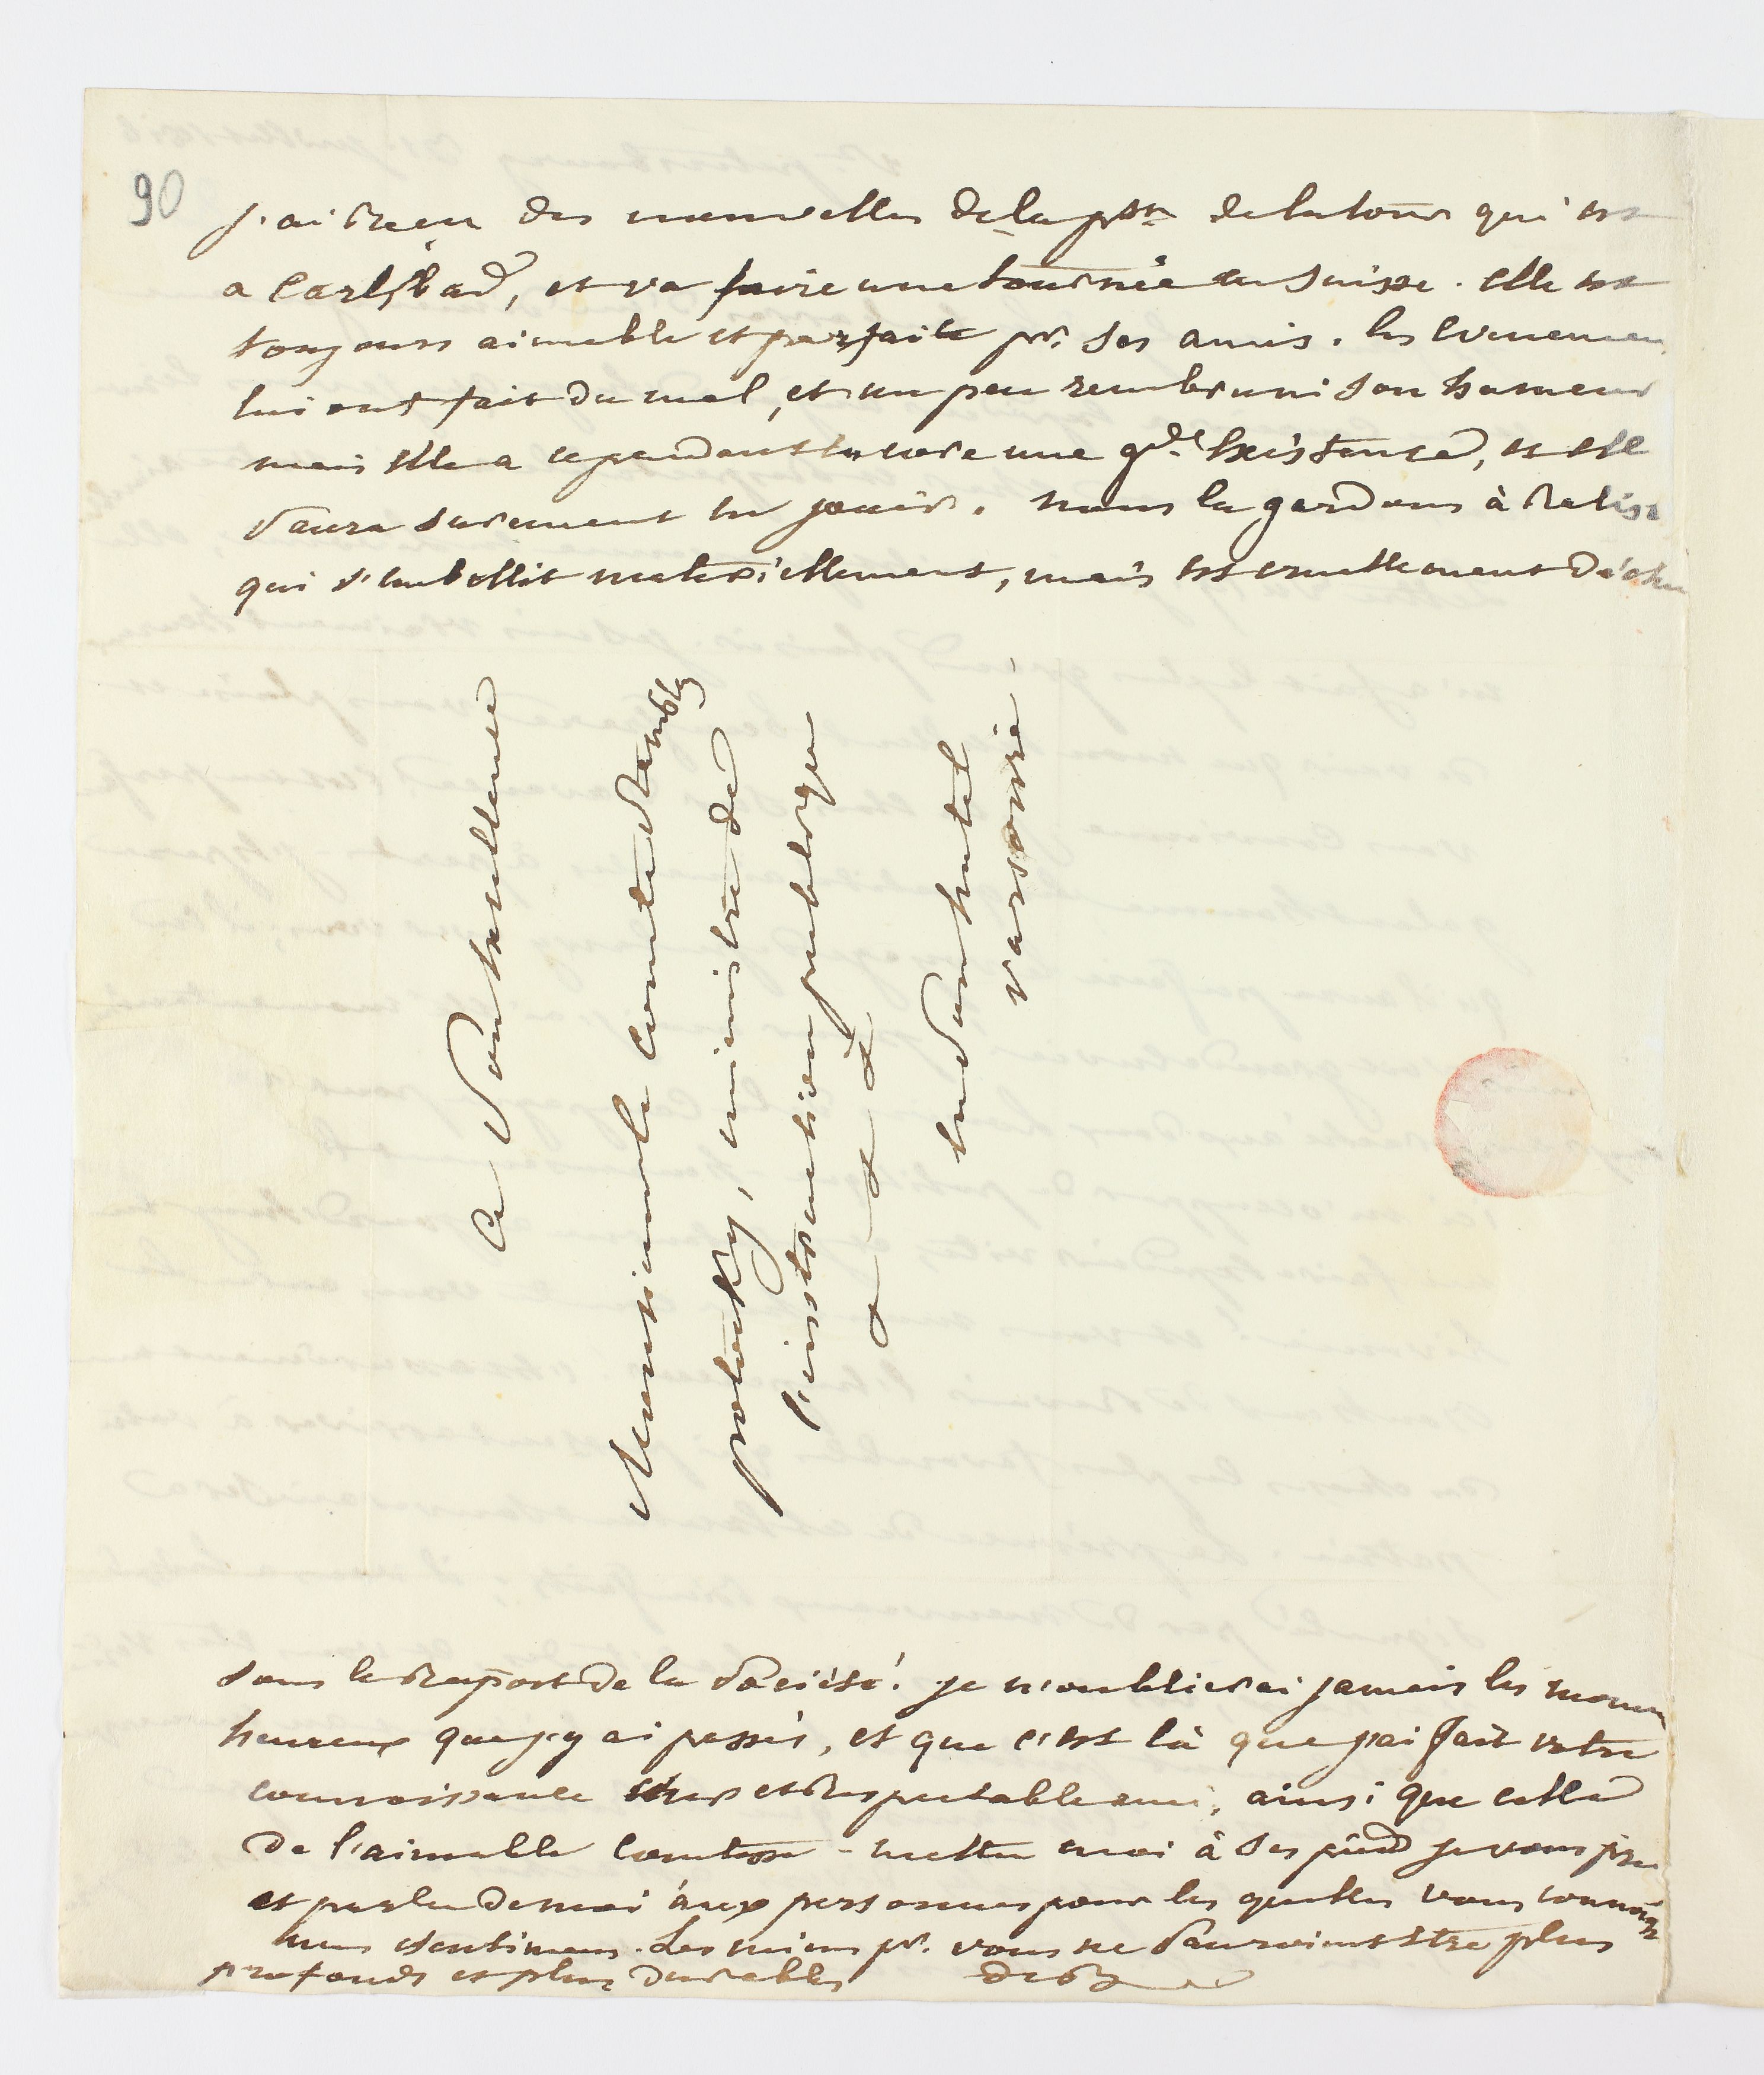 90
j'ai recu des nouvelles de la psse de la tour qui est
a Carlsbad, et va faire une tournée en suisse. elle est
toujours aimable et parfaite pr. ses amis. les evenemen
lui ont fait du mal, et un peu rembruni son humeur
mais elle a cependant encore une gde. existence, et elle
saura surement en jouir. nous la gardons à
qui s'embellit materiellement, mais est cruellement déchu
a Son Excellence
Monsieur le Comte Stanislas
potocky, ministre de
l'instruction publique
& & &
en son hotel
varsovie.
sous le raport de la société! je n'oublierai jamais les momen
heureux que j'y ai passés, et que c'est là que j'ai fait votre
connoissance cher et respectable ami, ainsi que celle
de l'aimable Comtesse - mettez moi à ses pieds je vous prie
et parlez de moi aux personnes pour les quelles vous connoissez
mes sentimens. Les miens pr. vous ne sauroient etre plus
profonds et plus durables